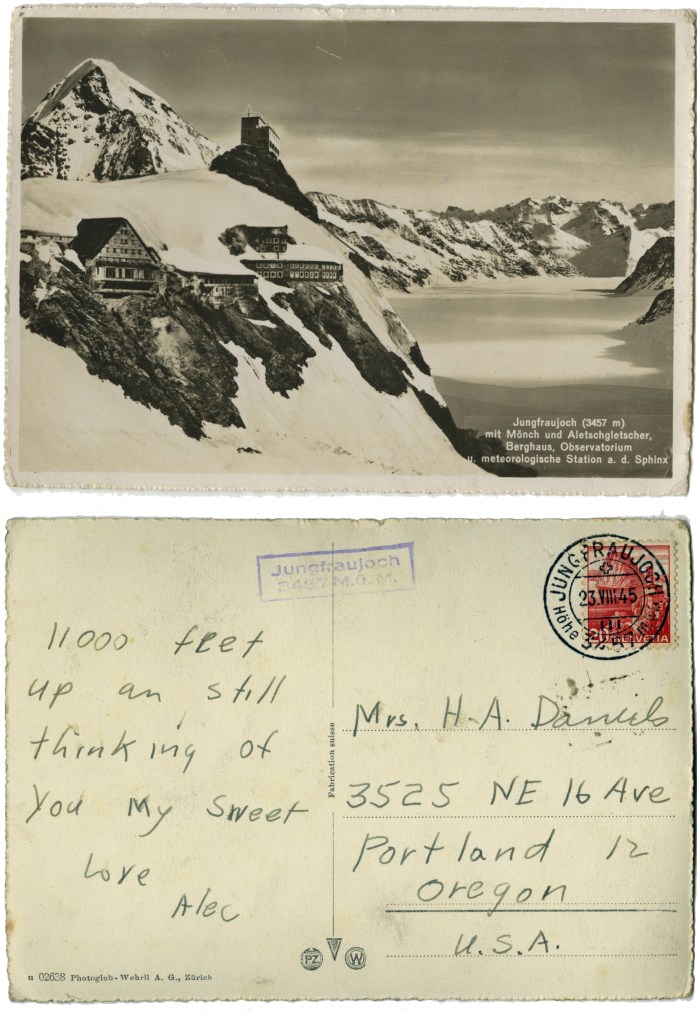 Jungfraujoch (3457 m)
mit Mönch und Aletschgletscher,
Berghaus, Observatorium
u. meteorologische Station a. d. Sphinx
Jungfraujoch
3457 M.ü.M.
JUNGFRAUJOCH
23.VIII.45
Höhe
HELVETIA
11000 feet
up an still
thinking of
You My Sweet
Love
Alec
Fabrication suisse
Mrs. H. A. Daniels
3525 NE 16 Ave
Portland 12
Oregon
U.S.A.
PZ W
u 02638 Photoglob-Wehrli A. G., Zürich